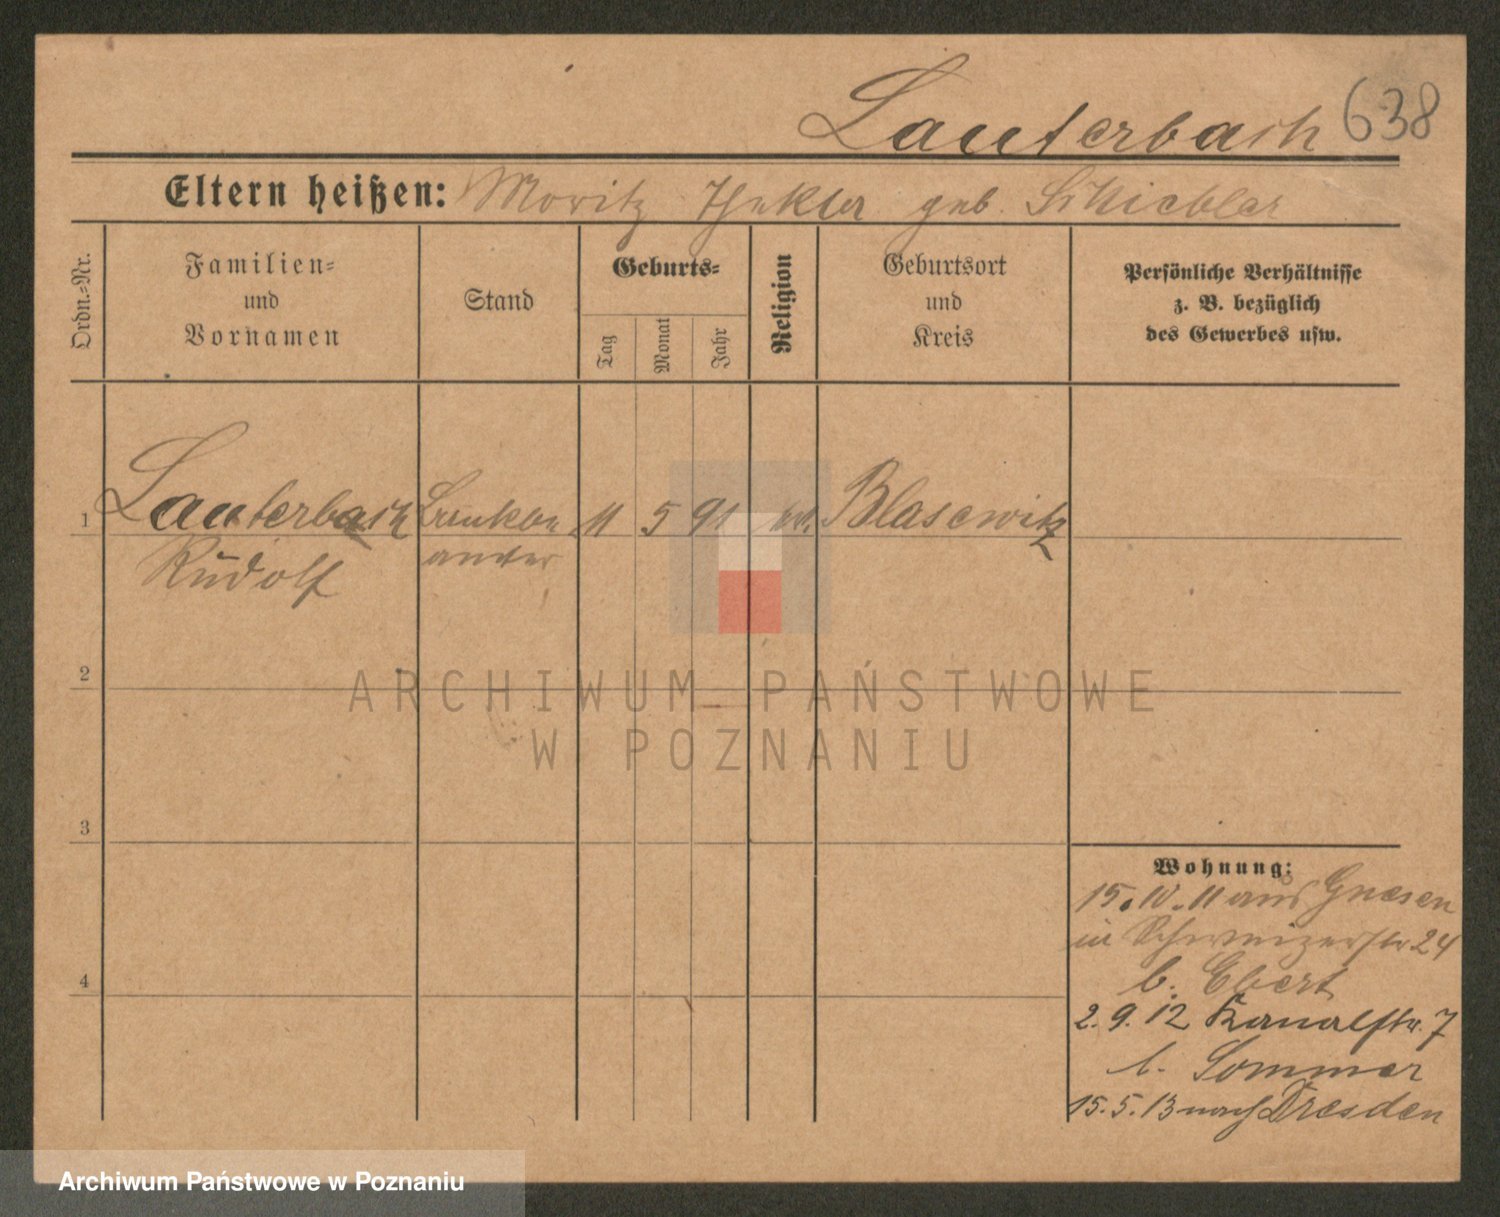 Lauterbach 638
Eltern heißen: Moritz Thekla geb. Schiebler
Ordn.-Nr.
Familien-
und
Vornamen
Stand
Geburts-
Tag
Monat
Jahr
Religion
Geburtsort
und
Kreis
Persönliche Verhältnisse
z. B. bezüglich
des Gewerbes usw.
1 Lauterbach 11 5 91 Blasewitz
Rudolf
2
3
4
Wohnung:
15.10.11 aus Gnesen
in Schweizerstr 24
b. Ebert
2.9.12 Kanalstr. 7
b. Sommer
15.5.13 nach Dresden
ARCHIWUM PAŃSTWOWE
W POZNANIU
Archiwum Państwowe w Poznaniu